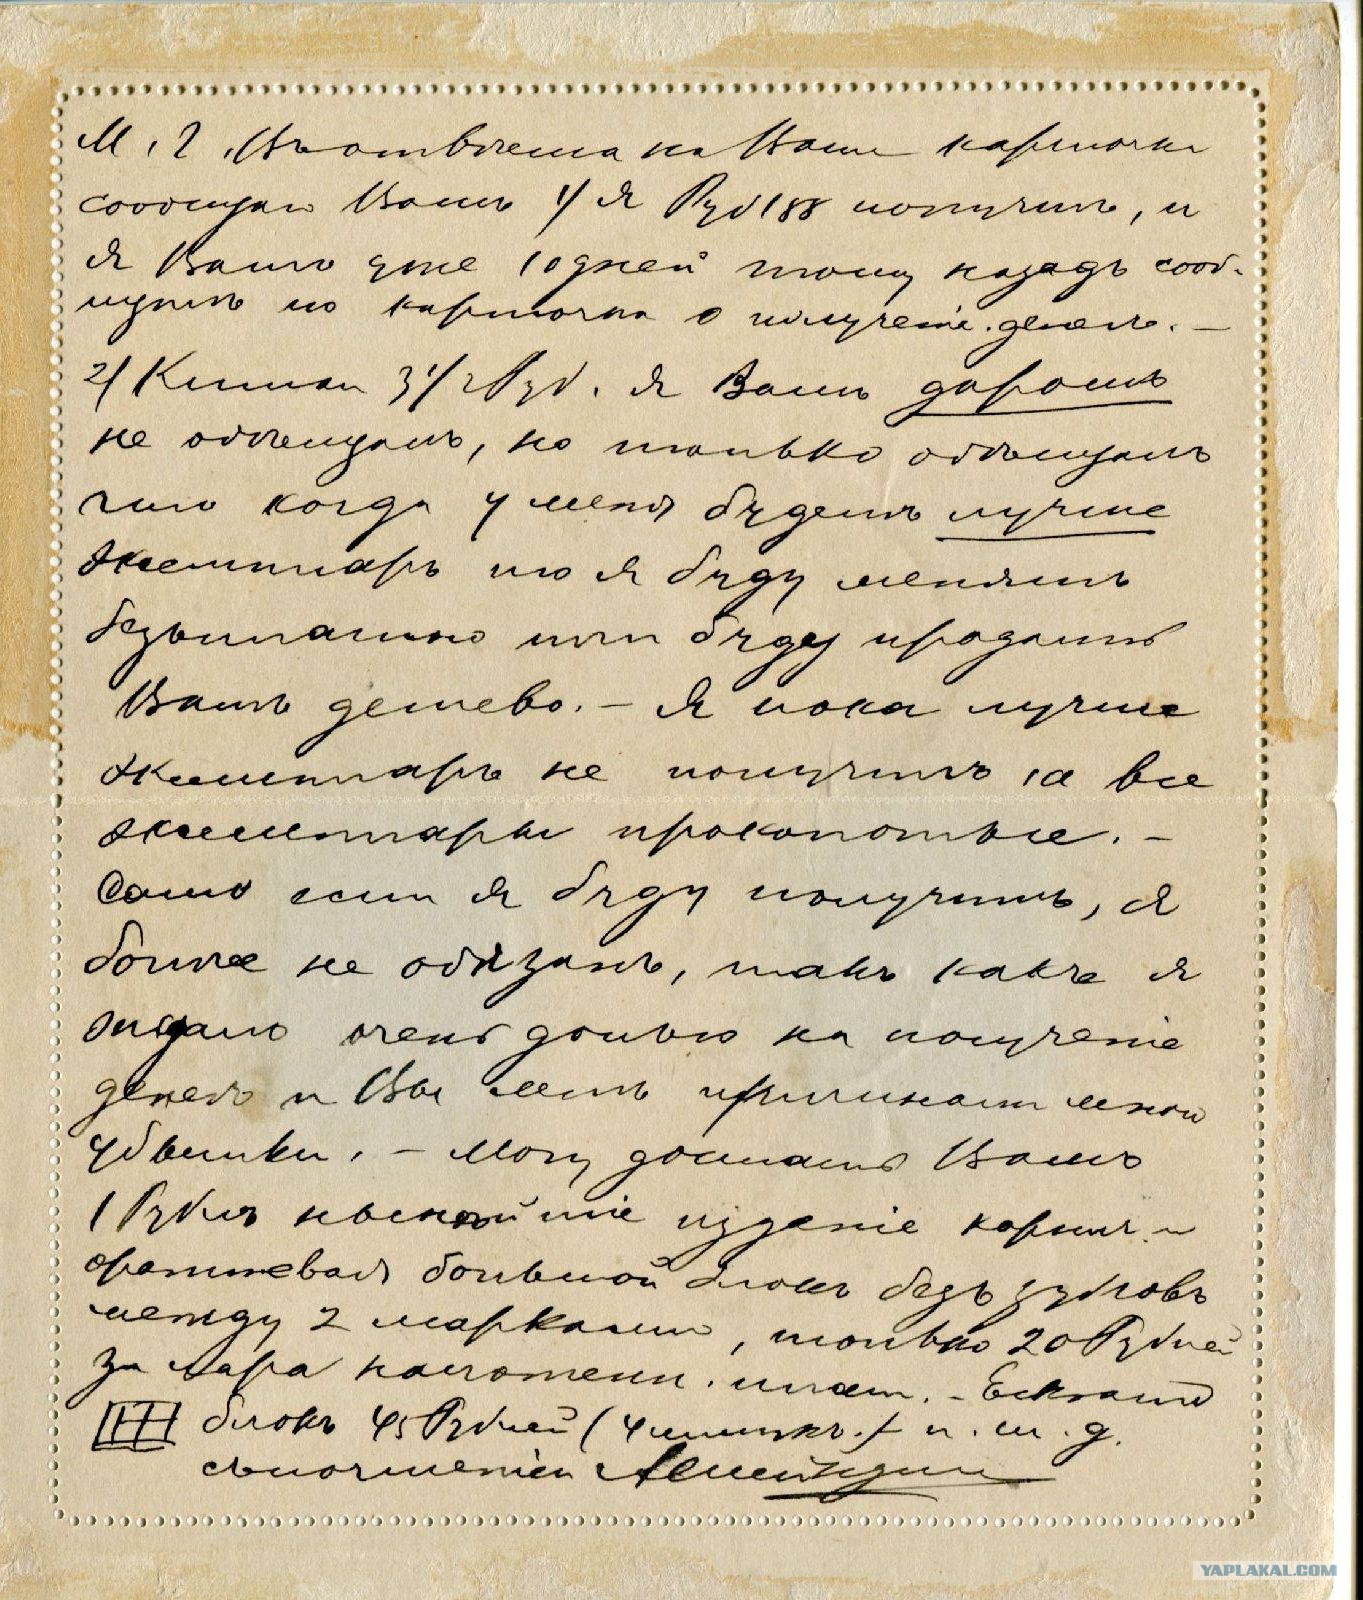 М. Г. Въ ответъ на Ваши карточки
сообщаю Вамъ 1/ я Руб 188 получилъ, и
я Вамъ уже 10 дней тому назадъ сооб-
щилъ по карточка о полученіе денегъ. —
2/ Китай 3 1/2 Руб. я Вамъ даромъ
не обѣщалъ, но только обѣщалъ
что когда у меня будетъ лучше
экземпларъ то я буду менять
безплатно или буду продать
Вамъ дешево. — Я пока лучше
экземпларъ не получилъ, а все
экземплары проколотые. —
Само если я буду получить, я
более не обязанъ, такъ какъ я
ждалъ очень долго на полученіе
денегъ и Вы мнѣ причинали много
убытки. — Могу достать Вамъ
1 Рубль новѣйшіе изданіе коричн. и
оранжевая большой блокъ безъ зубковъ
между 2 марками, только 20 Рублей
за пара наложен. плат. —
блокъ 45 Рублей (4 штукъ.) и. т. д.
съ почтеніемъ
YAPLAKAL.COM